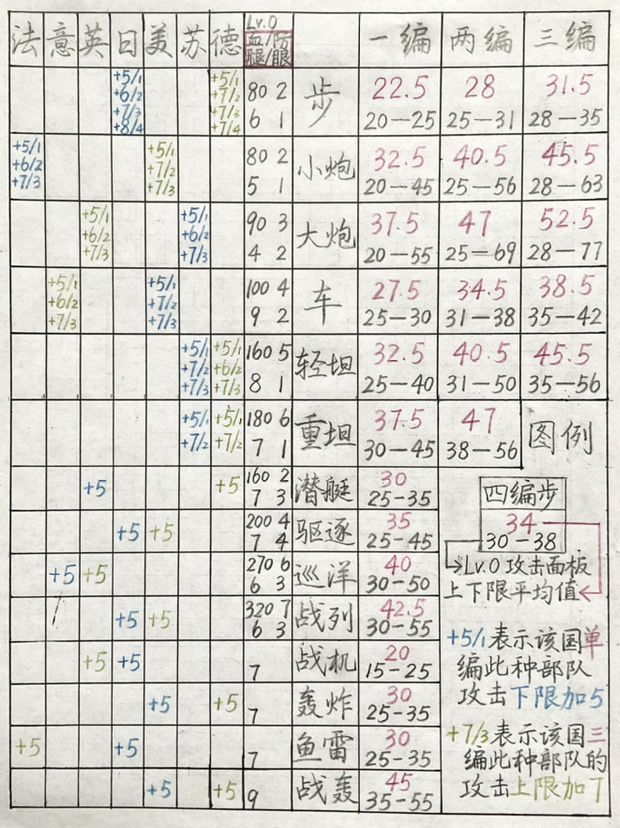 法 意 英 日 美 苏 德 Lv.0 血/防 腿/眼 一编 两编 三编
+5/1 +5/1
+6/2 +7/2 80 2 步 22.5 28 31.5
+7/3 +7/3 6 1 20—25 25—31 28—35
+8/4 +7/4
+5/1 +5/1 80 2 小炮 32.5 40.5 45.5
+6/2 +7/2 5 1 20—45 25—56 28—63
+7/3 +7/3
+5/1 +5/1 90 3 大炮 37.5 47 52.5
+6/2 +6/2 4 2 20—55 25—69 28—77
+7/3 +7/3
+5/1 +5/1 100 4 车 27.5 34.5 38.5
+6/2 +7/2 9 2 25—30 31—38 35—42
+7/3 +7/3
+5/1 +5/1 160 5 轻坦 32.5 40.5 45.5
+7/2 +6/2 8 1 25—40 31—50 35—56
+7/3 +7/3
+5/1 +5/1 180 6 重坦 37.5 47 图例
+7/2 +7/2 7 1 30—45 38—56
+5 +5 160 2 潜艇 30
7 3 25-35
+5 +5 200 4 驱逐 35
7 4 25-45
+5 +5 270 6 巡洋 40
6 3 30-50
+5 +5 320 7 战列 42.5
6 3 30-55
+5 +5 7 战机 20
15-25
+5 +5 7 轰炸 30
25-35
+5 +5 7 鱼雷 30
25-35
+5 +5 9 战轰 45
35-55
四编步
34
30-38
Lv.0攻击面板
上下限平均值
+5/1表示该国单
编此种部队
攻击下限加5
+7/3表示该国三
编此种部队的
攻击上限加7